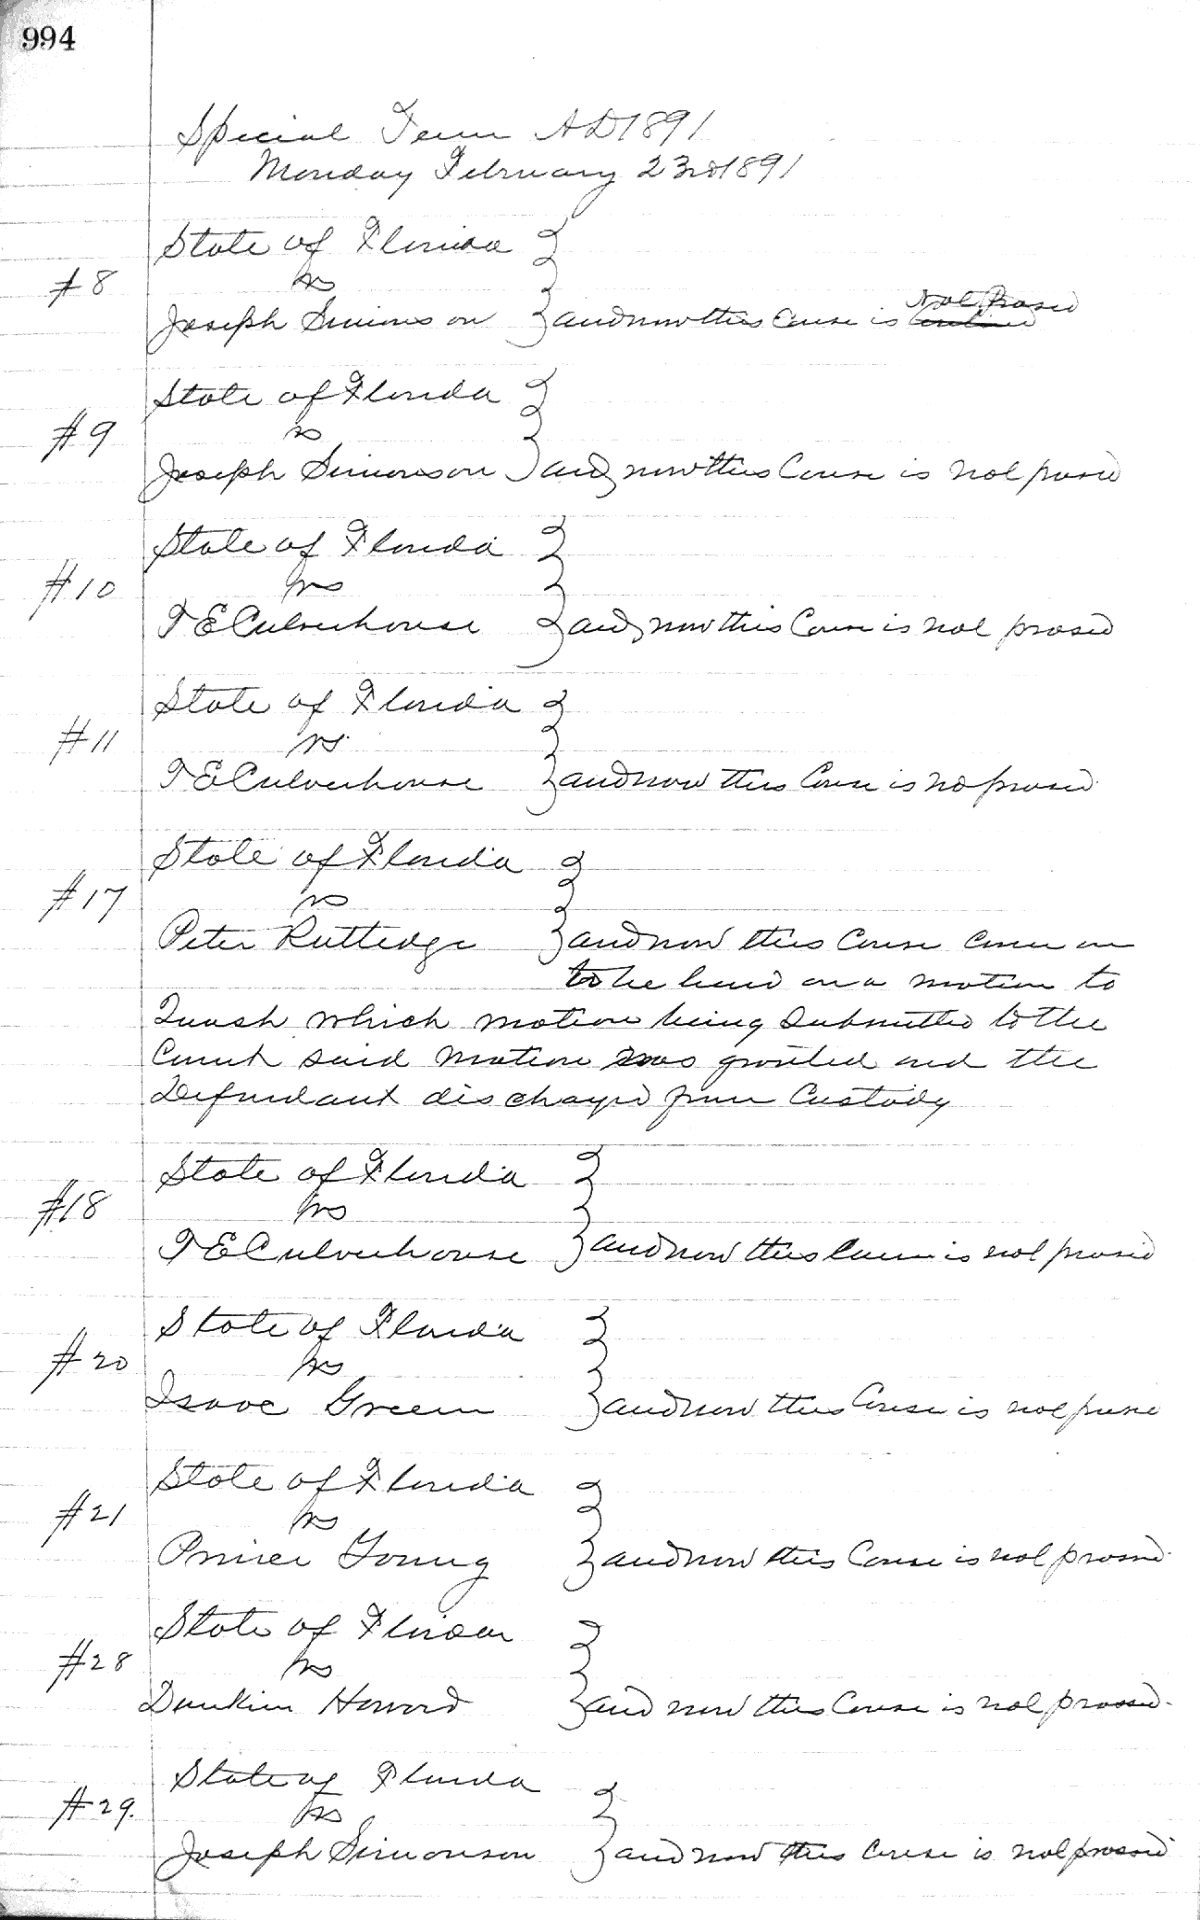 994
Special Term AD 1891
Monday February 23rd 1891
State of Florida
#8 vs
Nol Prosed
Joseph Simonson } and now this Cause is
State of Florida
#9 vs
Joseph Simonson } and now this Cause is nol prosed
State of Florida
#10 vs
T E Culverhouse } and now this Cause is nol prosed
State of Florida
#11 vs
T E Culverhouse } and now this Cause is no prosed
State of Florida
#17 vs
Peter Rutledge } and now this Cause came on
to be heard on a motion to
Quash which motion being Submitted to the
Court said motion was granted and the
Defendant discharged from Custody
State of Florida
#18 vs
T E Culverhouse } and now this Cause is nol prosed
State of Florida
#20 vs
Isaac Green } and now this Cause is nol prose
State of Florida
#21 vs
Prince Young } and now this Cause is nol prosed
State of Florida
#28 vs
Dunkin Howard } and now this Cause is nol prosed.
State of Florida
#29. vs
Joseph Simonson } and now this Cause is nol prossed